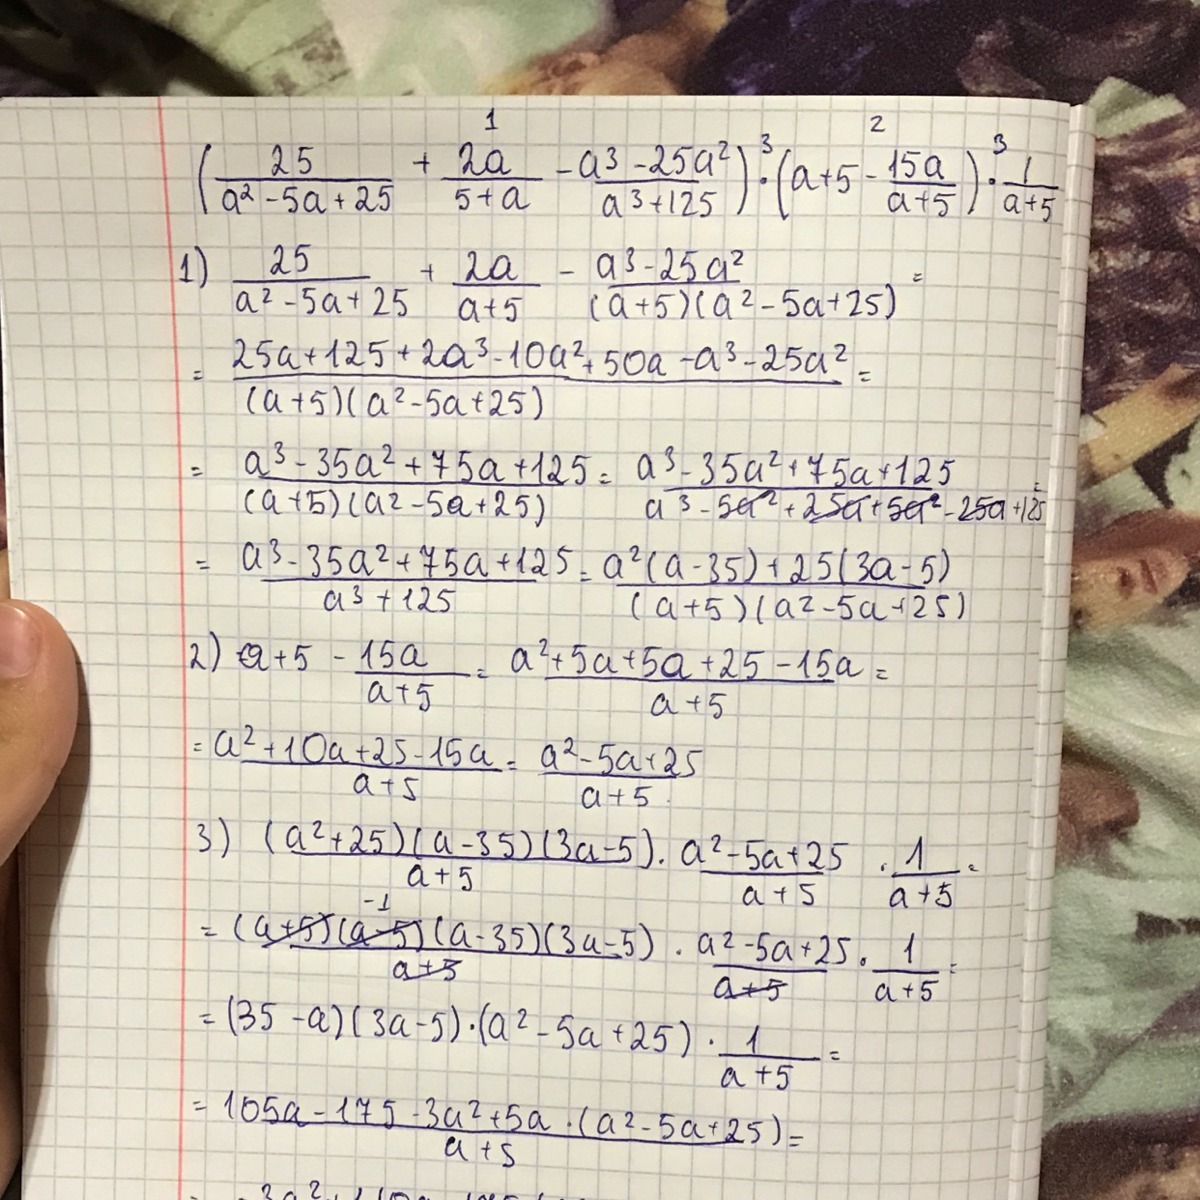 1 2
(25/(a² - 5a + 25) + 2a/(5 + a) - (a³ - 25a²)/(a³ + 125)) ·³ (a + 5 - 15a/(a + 5)) ·³ 1/(a + 5)
1) 25/(a² - 5a + 25) + 2a/(a + 5) - (a³ - 25a²)/((a + 5)(a² - 5a + 25)) =
= (25a + 125 + 2a³ - 10a² + 50a - a³ - 25a²)/((a + 5)(a² - 5a + 25)) =
= (a³ - 35a² + 75a + 125)/((a + 5)(a² - 5a + 25)) = (a³ - 35a² + 75a + 125)/(a³ - 5a² + 25a + 5a² - 25a + 125) =
= (a³ - 35a² + 75a + 125)/(a³ + 125) = (a²(a - 35) + 25(3a - 5))/((a + 5)(a² - 5a + 25))
2) a + 5 - 15a/(a + 5) = (a² + 5a + 5a + 25 - 15a)/(a + 5) =
= (a² + 10a + 25 - 15a)/(a + 5) = (a² - 5a + 25)/(a + 5)
3) ((a² + 25)(a - 35)(3a - 5))/(a + 5) · (a² - 5a + 25)/(a + 5) · 1/(a + 5) =
-1
= ((a + 5)(a - 5)(a - 35)(3a - 5))/(a + 5) · (a² - 5a + 25)/(a + 5) · 1/(a + 5) =
= (35 - a)(3a - 5) · (a² - 5a + 25) · 1/(a + 5) =
= (105a - 175 - 3a² + 5a · (a² - 5a + 25))/(a + 5) =